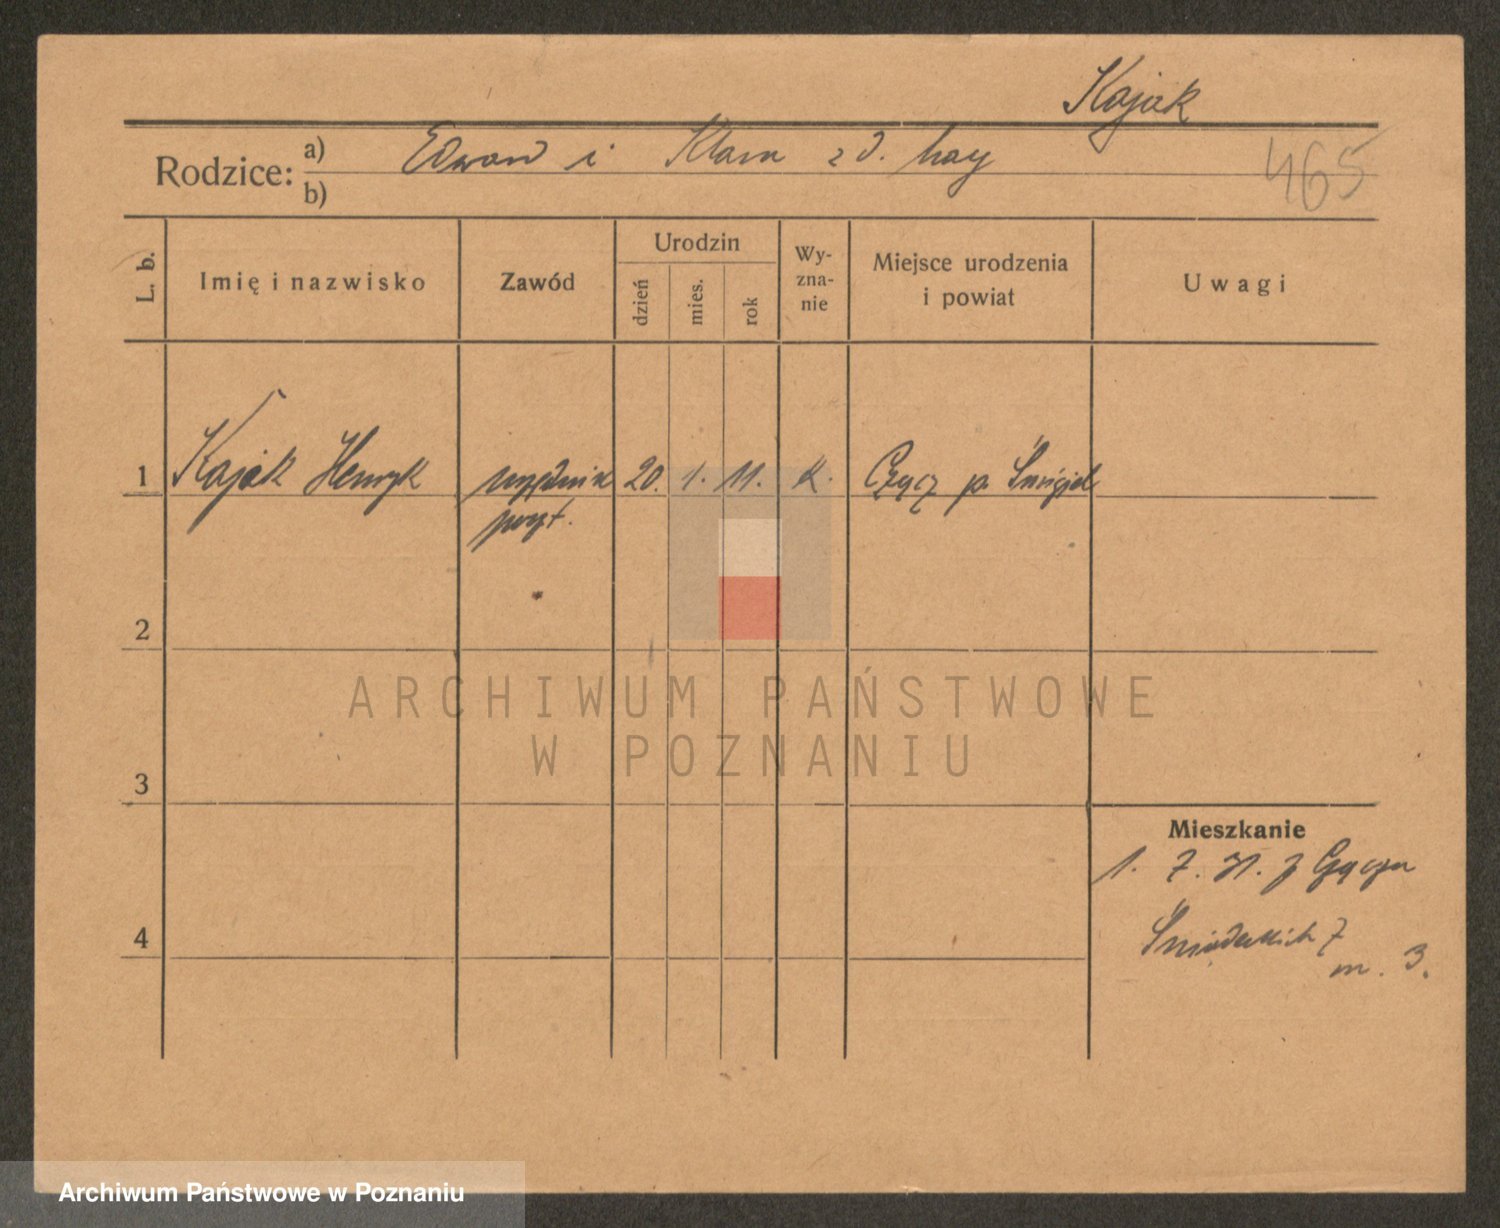 Kajak
Rodzice: a) Edward i Klara z d. hay
b)
465
L. b. Imię i nazwisko Zawód Urodzin dzień mies. rok Wy-zna-nie Miejsce urodzenia i powiat Uwagi
1 Kajak Henryk urzędnik 20. 1. 11. k. Czącz p. Śmigiel
poczt.
2
ARCHIWUM PAŃSTWOWE
W POZNANIU
3
Mieszkanie
1. 7. 31. z
4
Śniadeckich 7
m. 3.
Archiwum Państwowe w Poznaniu